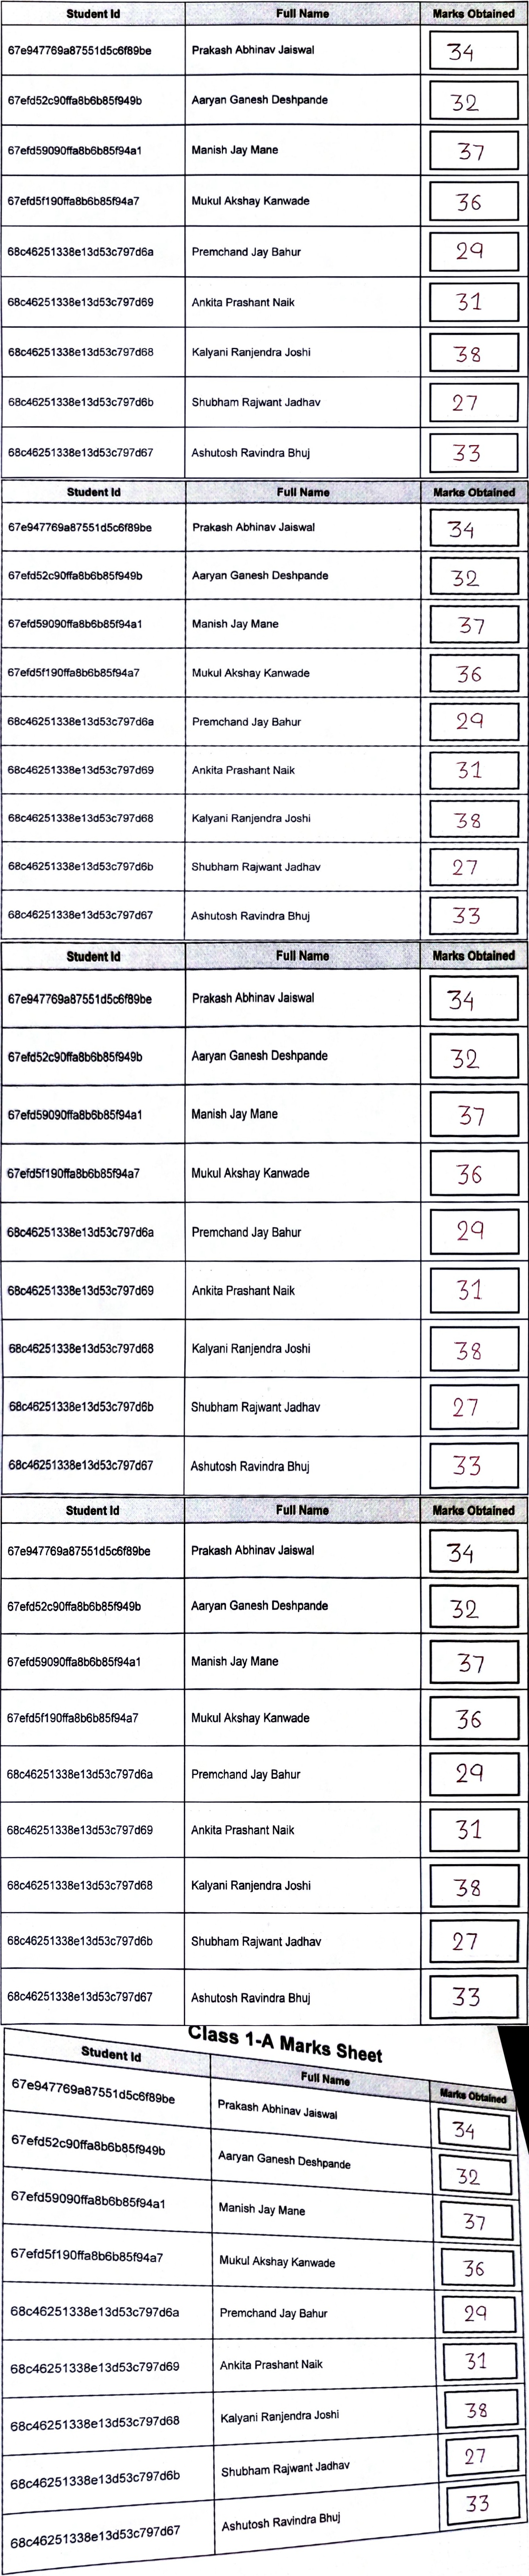 Student Id Full Name Marks Obtained
67e947769a87551d5c6f89be Prakash Abhinav Jaiswal 34
67efd52c90ffa8b6b85f949b Aaryan Ganesh Deshpande 32
67efd59090ffa8b6b85f94a1 Manish Jay Mane 37
67efd5f190ffa8b6b85f94a7 Mukul Akshay Kanwade 36
68c46251338e13d53c797d6a Premchand Jay Bahur 29
68c46251338e13d53c797d69 Ankita Prashant Naik 31
68c46251338e13d53c797d68 Kalyani Ranjendra Joshi 38
68c46251338e13d53c797d6b Shubham Rajwant Jadhav 27
68c46251338e13d53c797d67 Ashutosh Ravindra Bhuj 33
Student Id Full Name Marks Obtained
67e947769a87551d5c6f89be Prakash Abhinav Jaiswal 34
67efd52c90ffa8b6b85f949b Aaryan Ganesh Deshpande 32
67efd59090ffa8b6b85f94a1 Manish Jay Mane 37
67efd5f190ffa8b6b85f94a7 Mukul Akshay Kanwade 36
68c46251338e13d53c797d6a Premchand Jay Bahur 29
68c46251338e13d53c797d69 Ankita Prashant Naik 31
68c46251338e13d53c797d68 Kalyani Ranjendra Joshi 38
68c46251338e13d53c797d6b Shubham Rajwant Jadhav 27
68c46251338e13d53c797d67 Ashutosh Ravindra Bhuj 33
Student Id Full Name Marks Obtained
67e947769a87551d5c6f89be Prakash Abhinav Jaiswal 34
67efd52c90ffa8b6b85f949b Aaryan Ganesh Deshpande 32
67efd59090ffa8b6b85f94a1 Manish Jay Mane 37
67efd5f190ffa8b6b85f94a7 Mukul Akshay Kanwade 36
68c46251338e13d53c797d6a Premchand Jay Bahur 29
68c46251338e13d53c797d69 Ankita Prashant Naik 31
68c46251338e13d53c797d68 Kalyani Ranjendra Joshi 38
68c46251338e13d53c797d6b Shubham Rajwant Jadhav 27
68c46251338e13d53c797d67 Ashutosh Ravindra Bhuj 33
Student Id Full Name Marks Obtained
67e947769a87551d5c6f89be Prakash Abhinav Jaiswal 34
67efd52c90ffa8b6b85f949b Aaryan Ganesh Deshpande 32
67efd59090ffa8b6b85f94a1 Manish Jay Mane 37
67efd5f190ffa8b6b85f94a7 Mukul Akshay Kanwade 36
68c46251338e13d53c797d6a Premchand Jay Bahur 29
68c46251338e13d53c797d69 Ankita Prashant Naik 31
68c46251338e13d53c797d68 Kalyani Ranjendra Joshi 38
68c46251338e13d53c797d6b Shubham Rajwant Jadhav 27
68c46251338e13d53c797d67 Ashutosh Ravindra Bhuj 33
Class 1-A Marks Sheet
Student Id Full Name Marks Obtained
67e947769a87551d5c6f89be Prakash Abhinav Jaiswal 34
67efd52c90ffa8b6b85f949b Aaryan Ganesh Deshpande 32
67efd59090ffa8b6b85f94a1 Manish Jay Mane 37
67efd5f190ffa8b6b85f94a7 Mukul Akshay Kanwade 36
68c46251338e13d53c797d6a Premchand Jay Bahur 29
68c46251338e13d53c797d69 Ankita Prashant Naik 31
68c46251338e13d53c797d68 Kalyani Ranjendra Joshi 38
68c46251338e13d53c797d6b Shubham Rajwant Jadhav 27
68c46251338e13d53c797d67 Ashutosh Ravindra Bhuj 33